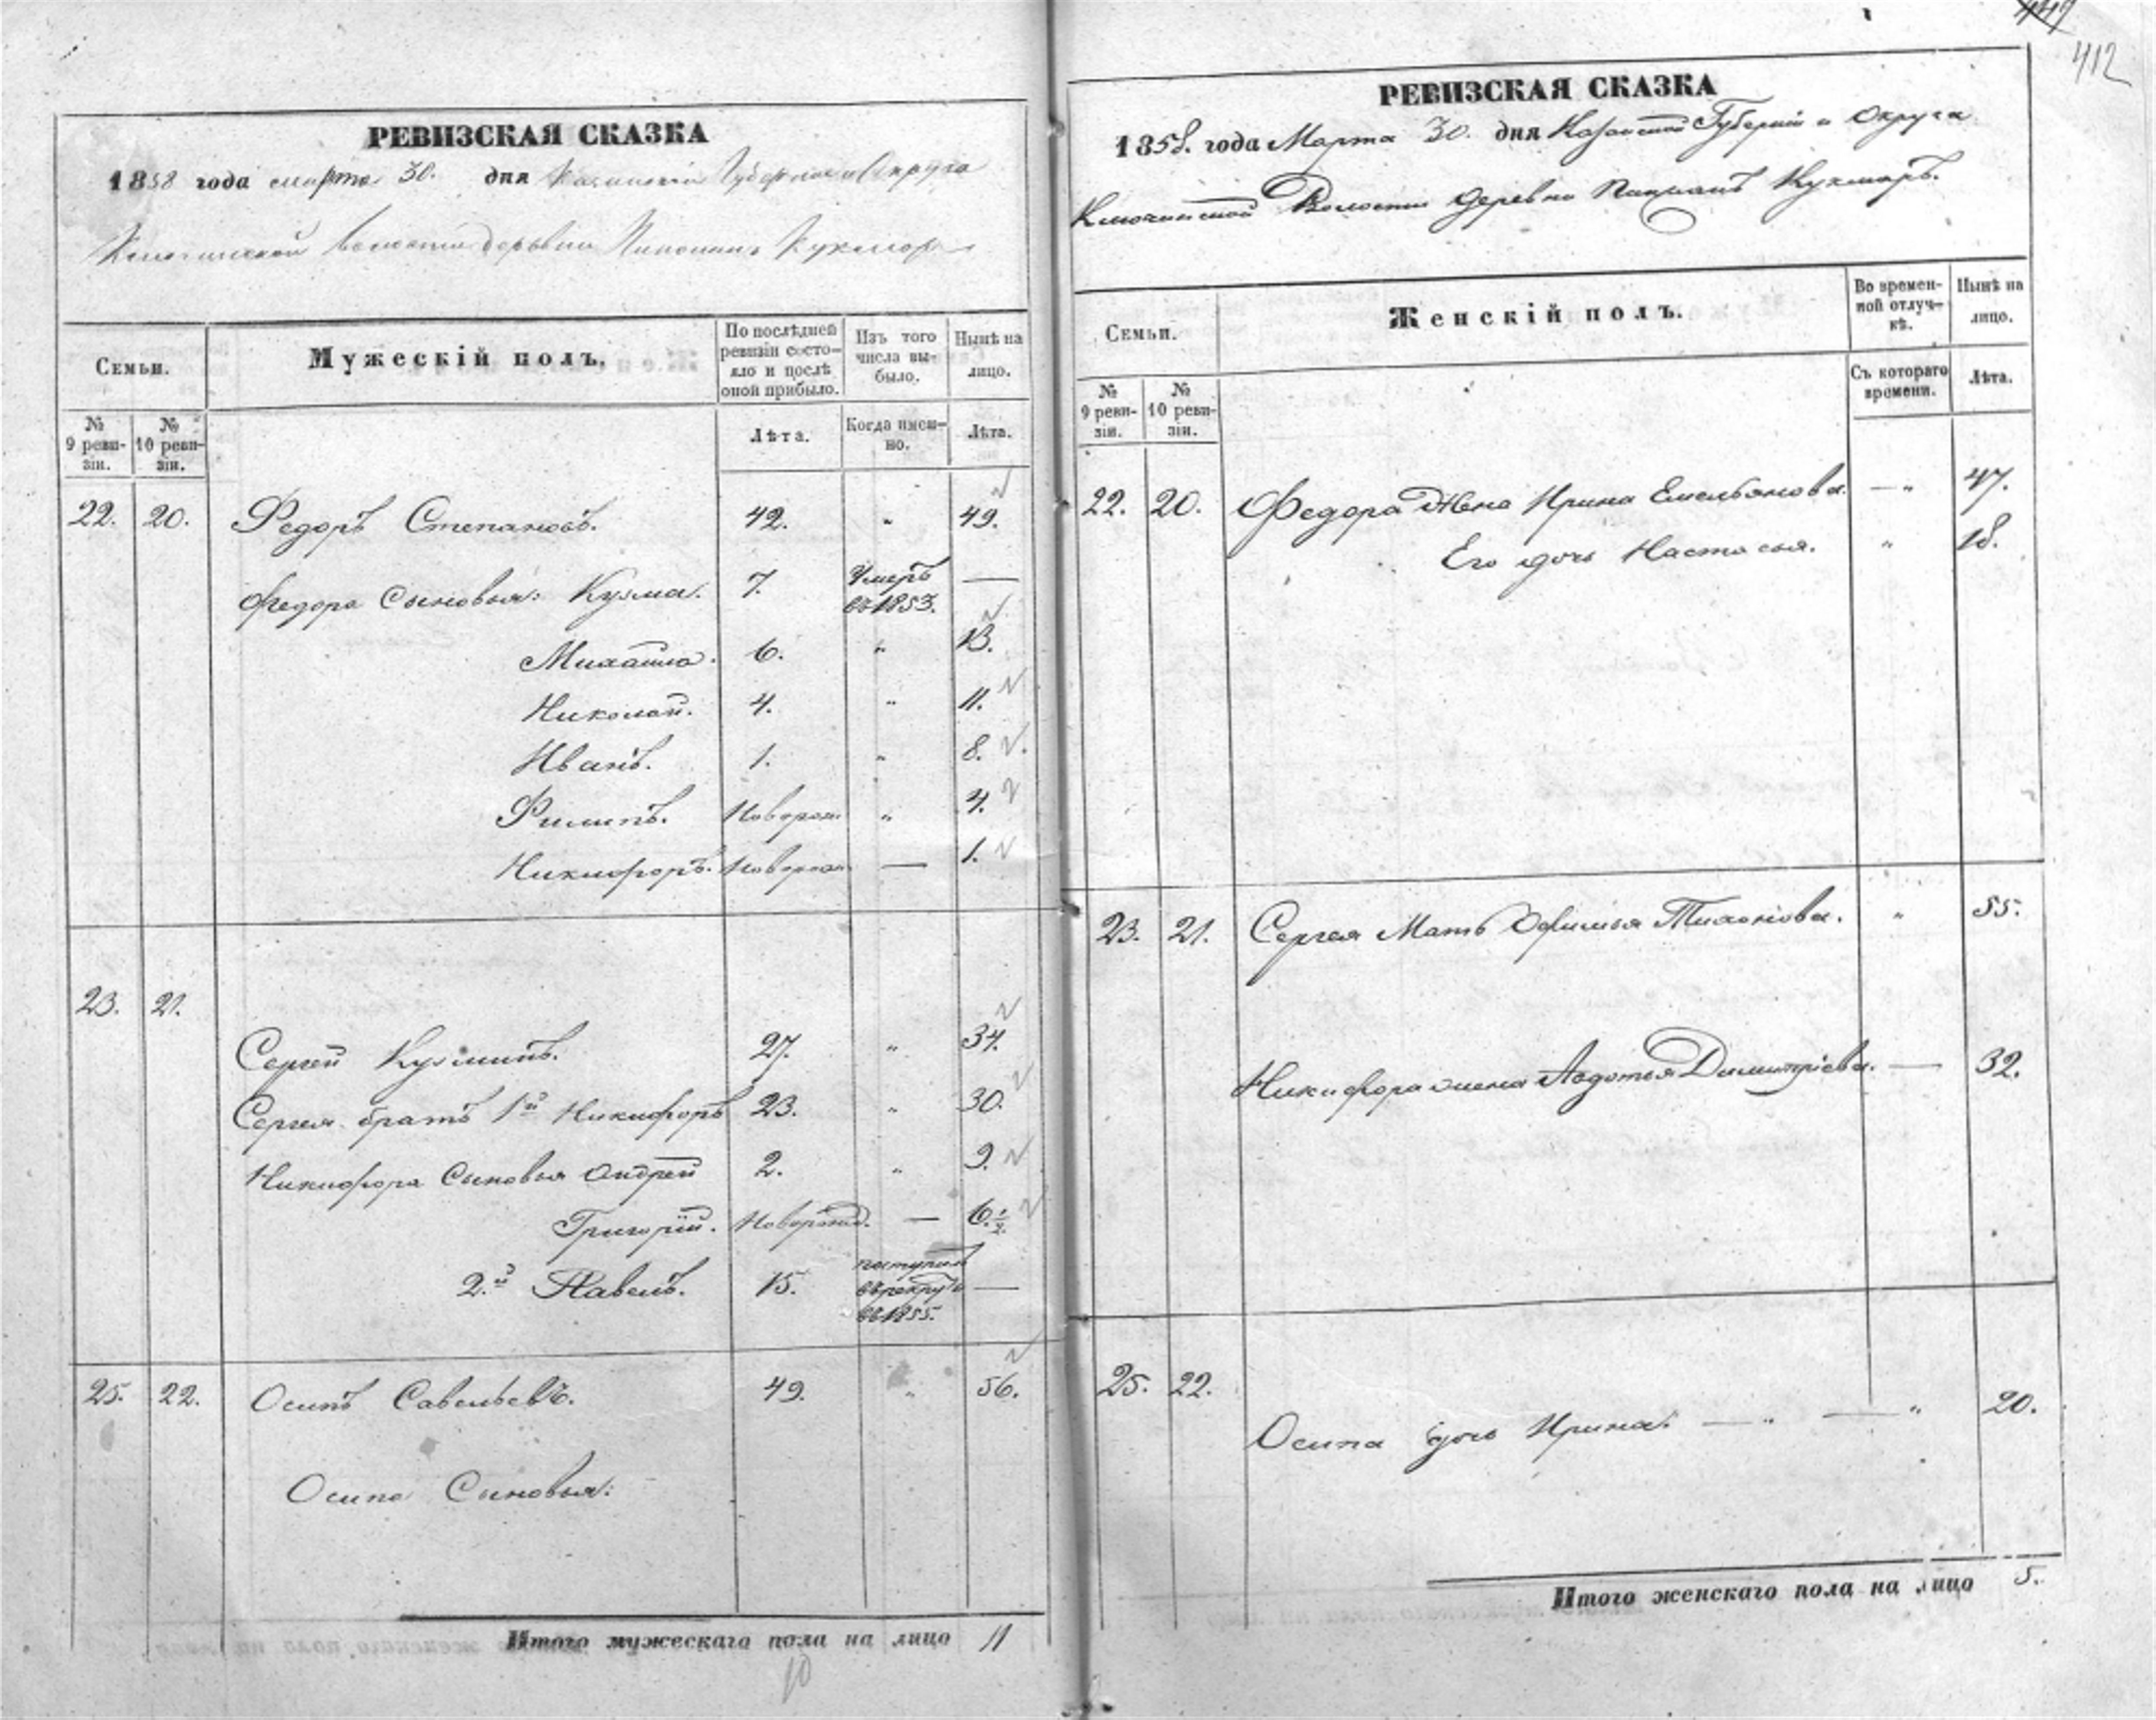 РЕВИЗСКАЯ СКАЗКА
1858 года марта 30. дня Казанской Губернии и Округа
Ключинской Волости деревни Кукморъ
Семьи.
Мужескій полъ.
По послѣдней ревизіи состо-
яло и послѣ
оной прибыло.
Изъ того
числа вы-
было.
Нынѣ на
лицо.
№
9 реви-
зіи.
№
10 реви-
зіи.
Лѣта.
Когда имен-
но.
Лѣта.
22. 20. Федоръ Степановъ. 42. " 49.
Федора Сыновья: Кузма. 7. Умеръ въ 1853. —
Михайла. 6. " 13.
Николай. 4. " 11.
Иванъ. 1. " 8.
Филипъ. Новорож " 4.
Никифоръ. Новорож — 1.
23. 21.
Сергей Кузминъ. 27. " 34.
Сергея братъ 1й Никифоръ 23. " 30.
Никифора Сыновья Андрей 2. " 9.
Григорій. Новорожд. — 6.½
2.й Павелъ. 15. поступилъ въ рекруты въ 1855. —
25. 22. Осипъ Савельевъ. 49. " 56.
Осипа Сыновья:
Итого мужескаго пола на лицо 11
10
447
412
РЕВИЗСКАЯ СКАЗКА
1858. года Марта 30. дня Казанской Губерніи и Округа
Ключинской Волости деревни Кукморъ.
Семьи.
Женскій полъ.
Во времен-
ной отлуч-
кѣ.
Нынѣ на
лицо.
№
9 реви-
зіи.
№
10 реви-
зіи.
Съ котораго
времени.
Лѣта.
22. 20. Федора Жена Ирина Емельянова. — " 47.
Его дочь Настасья. " 18.
23. 21. Сергея Мать Офимья Тихонова. " 55.
Никифора жена Авдотья Димитріева. — 32.
25. 22.
Осипа дочь Ирина. — " — " 20.
Итого женскаго пола на лицо 5.